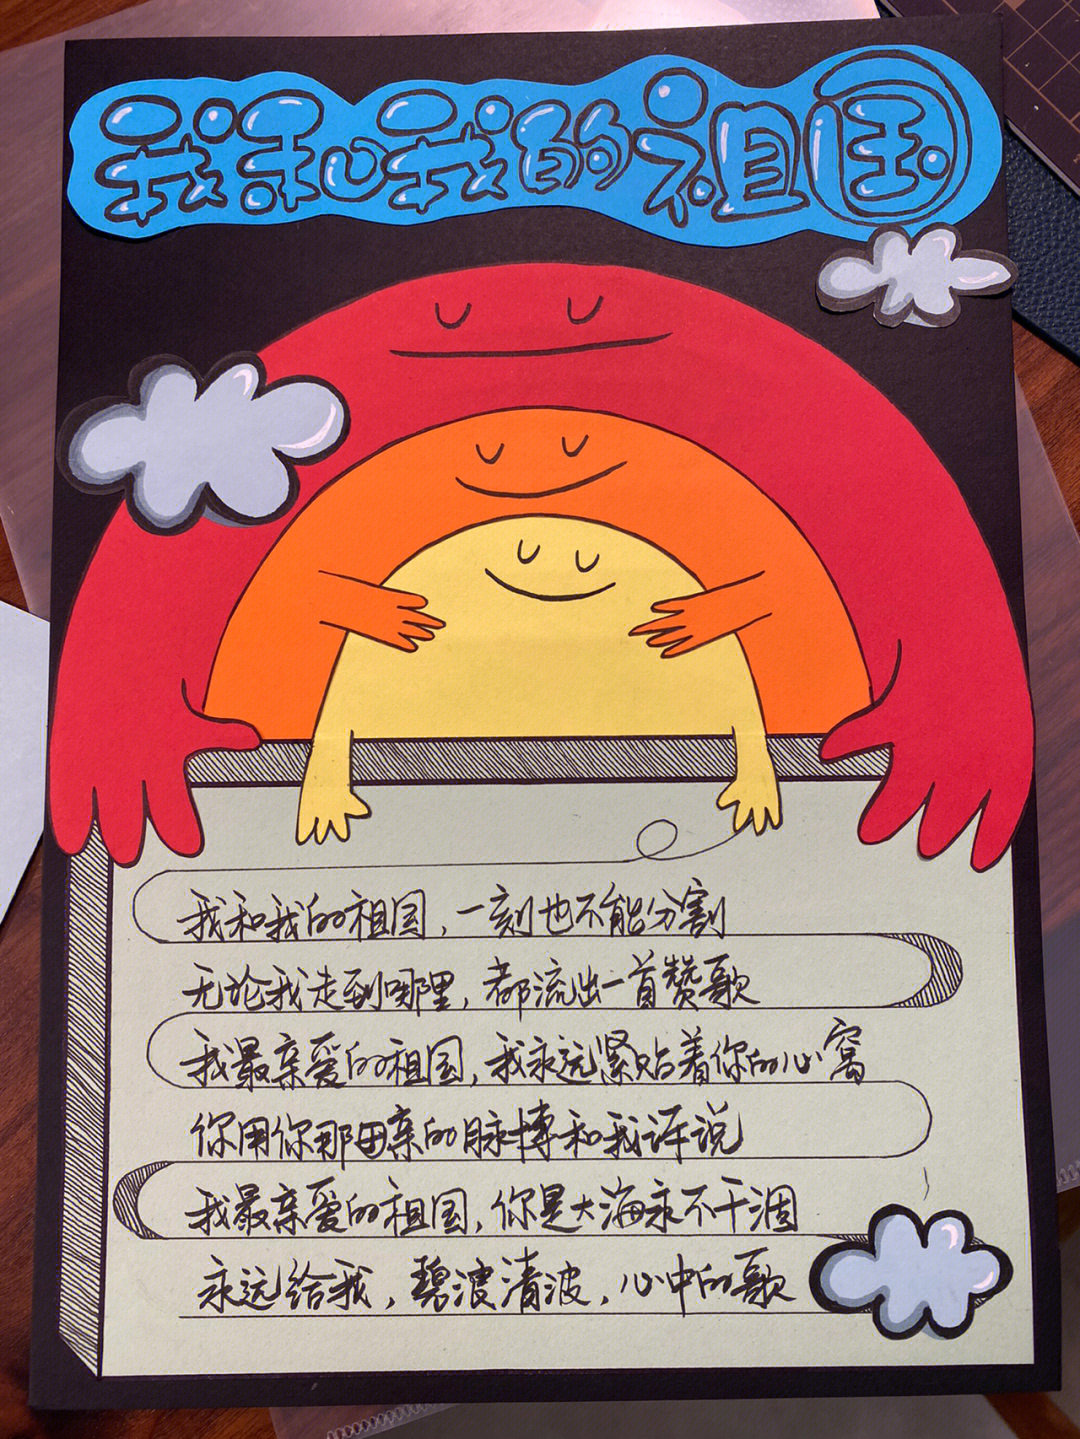 我和我的祖国
我和我的祖国，一刻也不能分割
无论我走到哪里，都流出一首赞歌
我最亲爱的祖国，我永远紧贴着你的心窝
你用你那母亲的脉搏和我诉说
我最亲爱的祖国，你是大海永不干涸
永远给我，碧浪清波，心中的歌